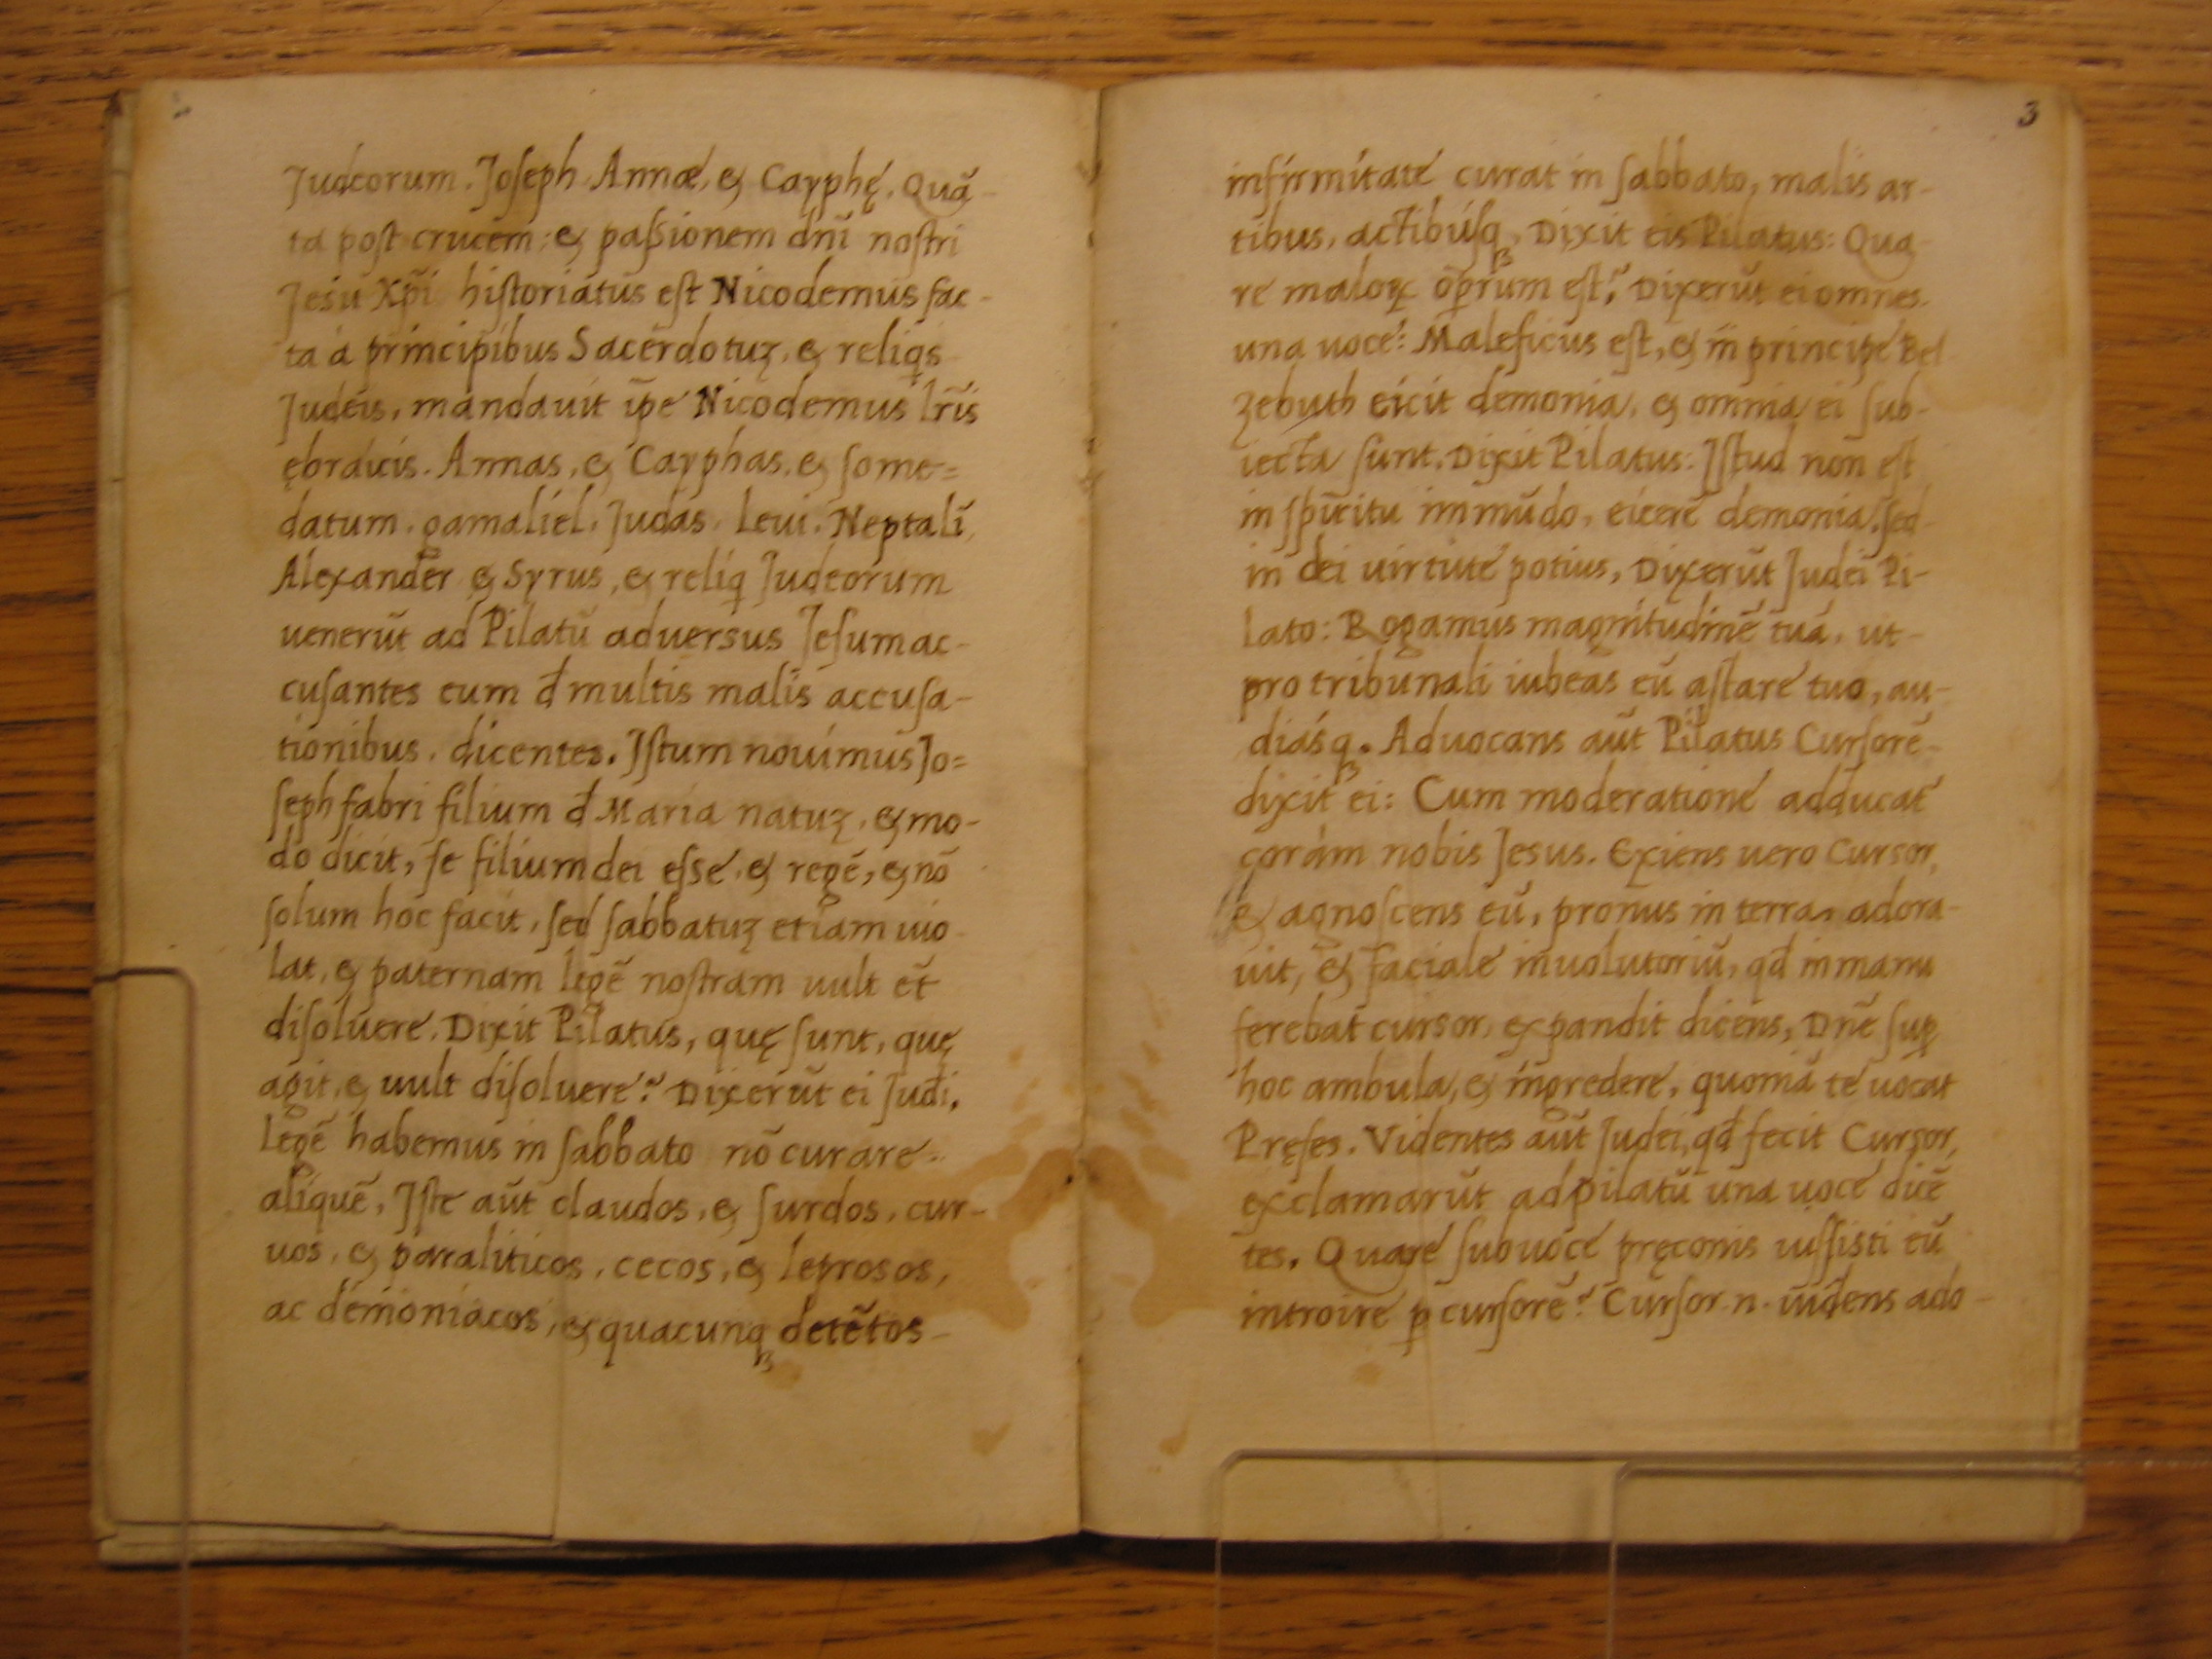 Judeorum. Joseph. Annæ, & Cayphę. Quã-
ta post crucem, & passionem dñi nostri
Jesu Xp̃i historiatus est Nicodemus fac-
ta á principibus Sacerdotuʒ, & reliq̃s
Judeis, mandauit ip̃e Nicodemus lr̃is
ębraicis. Annas, & Cayphas, & some=
datum. gamaliel. Judas. Leui. Neptali,
Alexander & Syrus, & reliq̃ Judeorum
uenerũt ad Pilatũ aduersus Jesum ac-
cusantes eum đ multis malis accusa-
tionibus, dicentes. Jstum nouimus Jo=
seph fabri filium đ Maria natuʒ, & mo-
do dicit, se filium dei esse, & regẽ, & nõ
solum hoc facit, sed sabbatuʒ etiam uio-
lat, & paternam legẽ nostram uult et̃
disoluere. Dixit Pilatus, quę sunt, quę
agit, & uult disoluere? Dixerũt ei Judi.
Legẽ habemus in sabbato nõ curare
aliquẽ, Jste aũt claudos, & surdos, cur-
uos, & paraliticos, cecos, & leprosos,
ac demoniacos, & quacunqʒ detẽtos-
3
infirmitate curat in sabbato, malis ar-
tibus, actibúsqʒ, Dixit eis Pilatus: Qua-
re maloꝝ op̃rum est? Dixerũt ei omnes
una uoce: Maleficus est, & in principe Bel
zebuth eicit demonia, & omnia ei sub-
iecta sunt. Dixit Pilatus: Jstud non est
in sp̃iritu immũdo, eicere demonia. sed-
in dei uirtute potius, Dixerũt Judei Pi-
lato: Rogamus magnitudinẽ tuã, ut-
pro tribunali iubeas eũ astare tuo, au-
diásqʒ. Aduocans aũt Pilatus Cursorẽ-
dixit ei: Cum moderatione adducat̃
corám nobis Jesus. Exiens uero Cursor,
& agnoscens eũ, pronus in terram adora-
uit, & faciale inuolutoriũ, qđ in manu
ferebat cursor, expandit dicens, Dñe sup̱
hoc ambula, & ingredere, quoniã te uocat
Pręses. Videntes aũt Judei, qđ fecit Cursor,
exclamarũt ad pilatũ una uoce dicẽ
tes. Quare sub uoce pręconis iussisti eũ
introire ꝑ cursorẽ? Cursor .n. uidens ado-